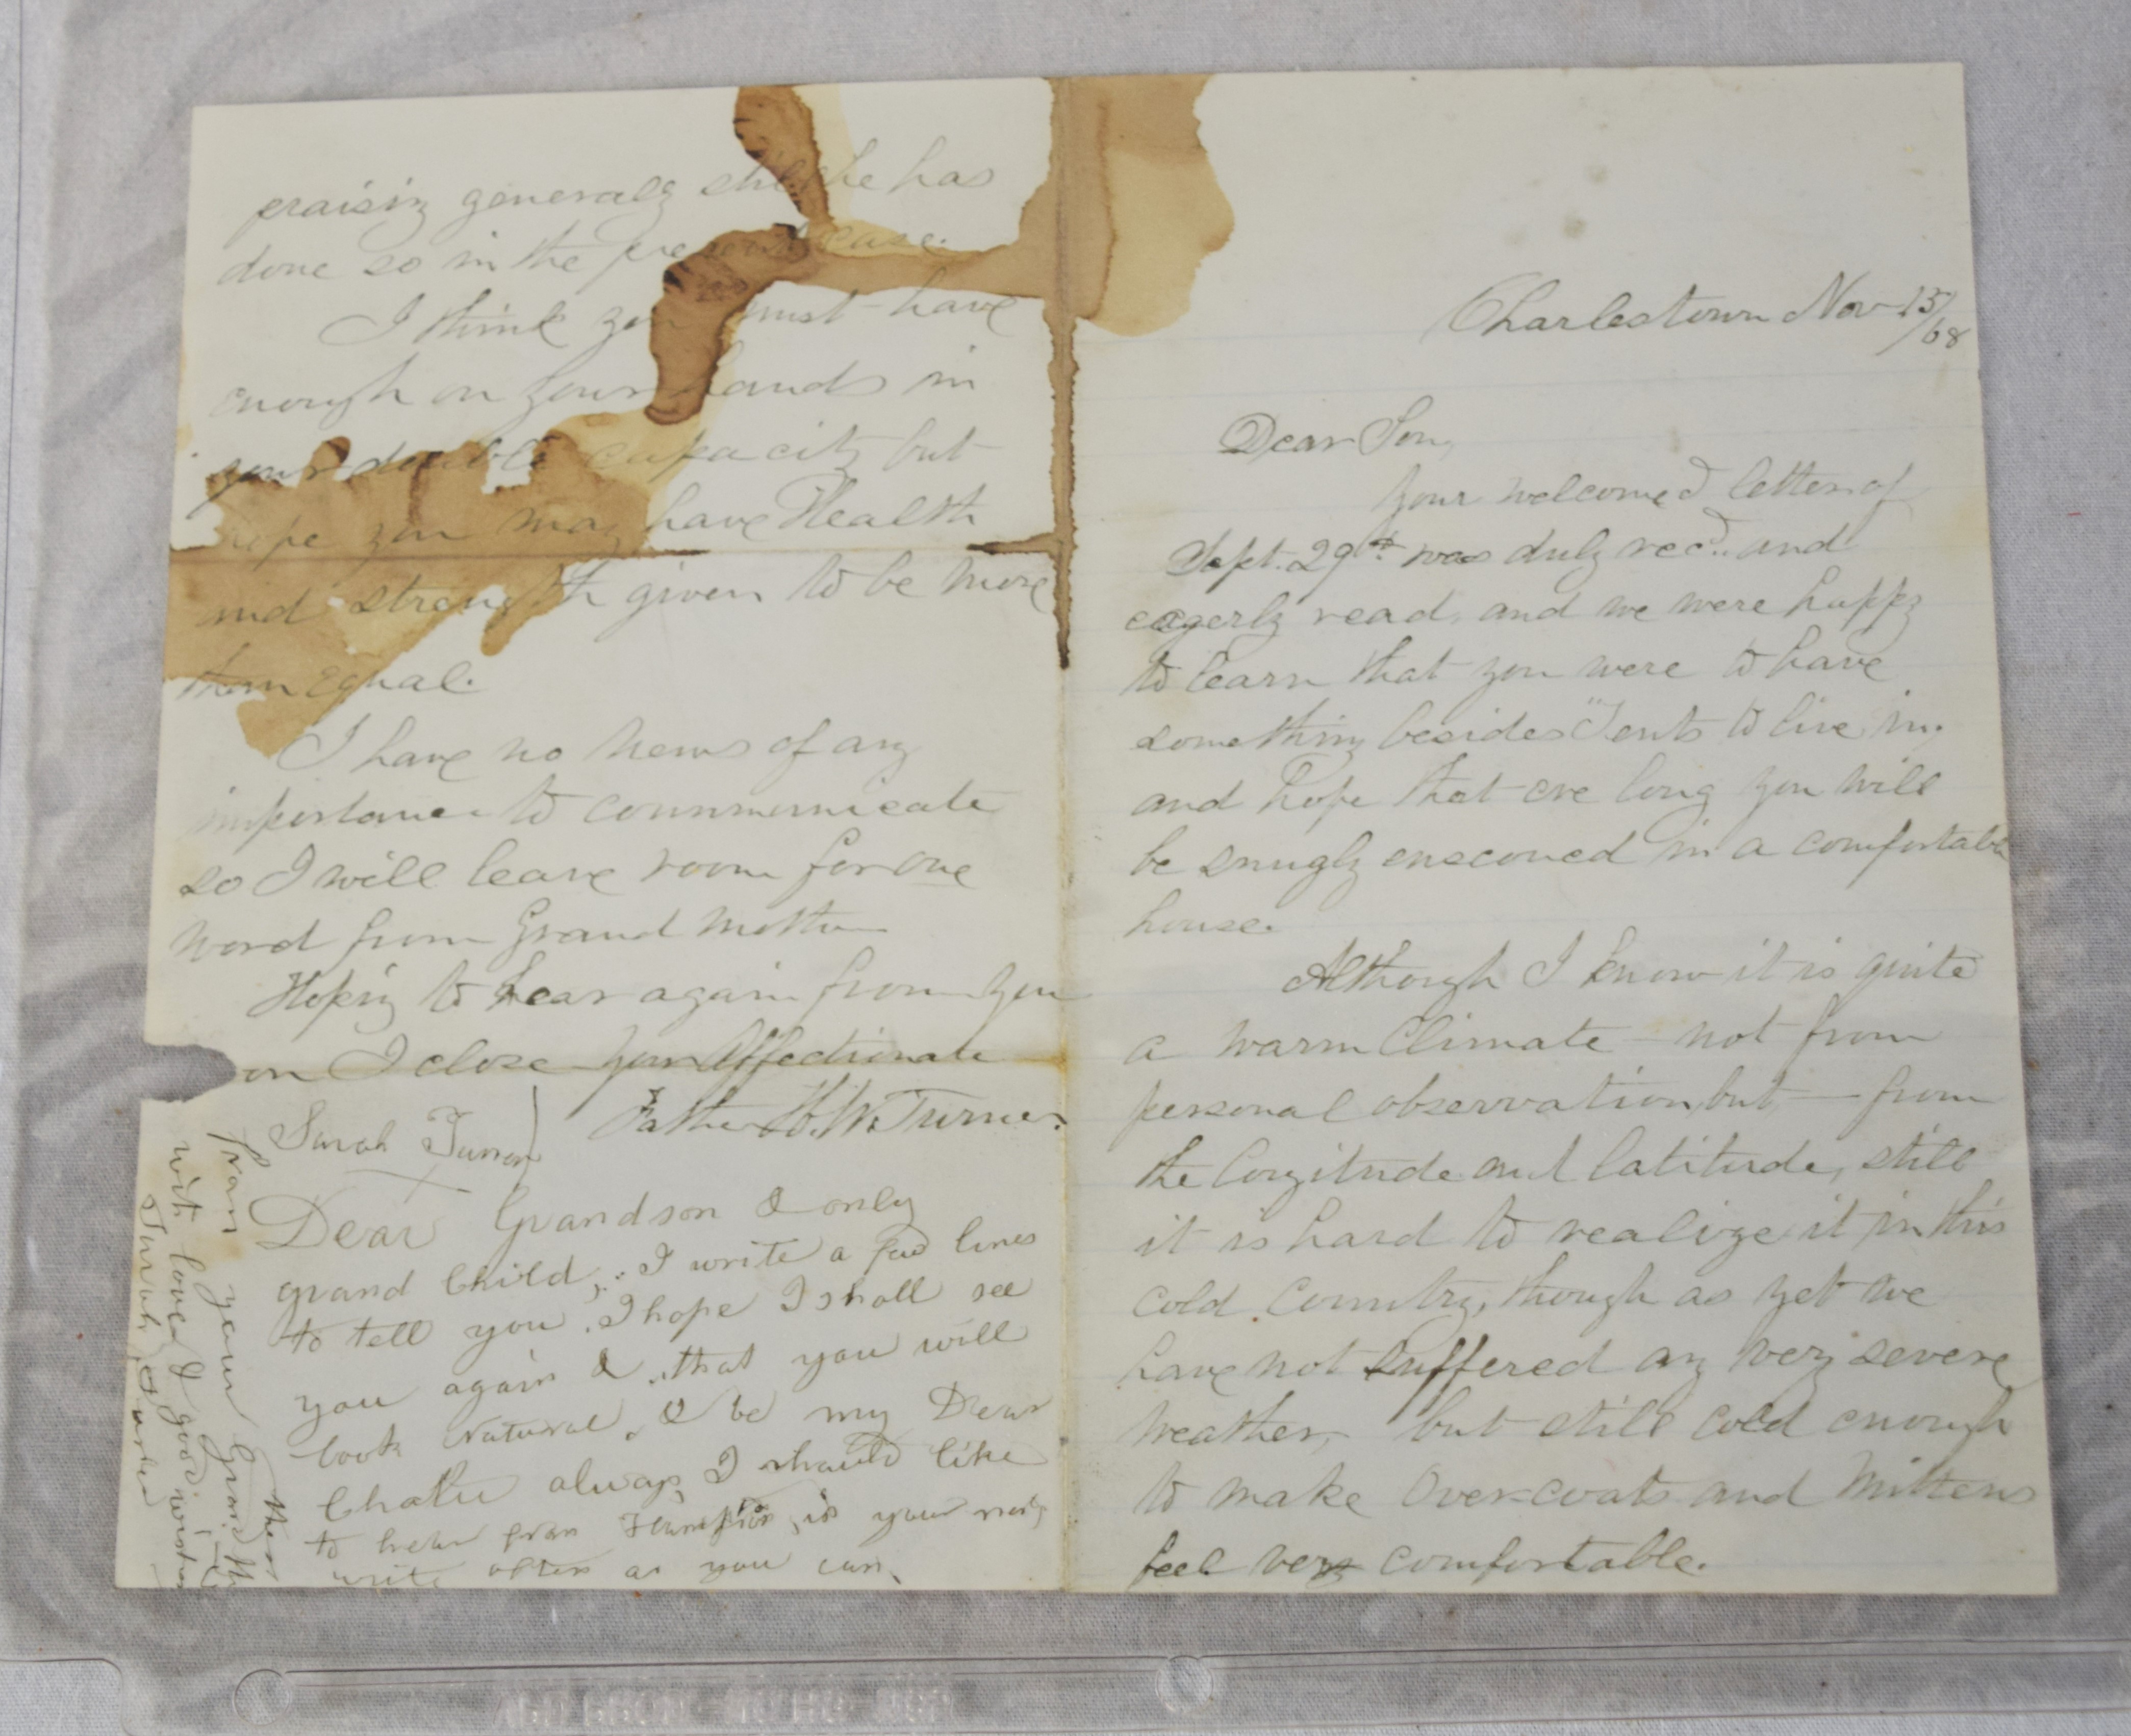 Charlestown Nov 15/68
Dear Son,
Your welcomed letter of
Sept. 29th was duly recd. and
eagerly read, and we were happy
to learn that you were to have
something besides "Tents to live in,
and hope that ere long you will
be snugly ensconced in a comfortable
house.
Although I know it is quite
a warm Climate - not from
personal observation, but - from
the longitude and latitude, still
it is hard to realize it in this
cold Country, though as yet we
have not suffered any very severe
weather, but still cold enough
to make Over-coats and Mittens
feel very comfortable.
praising generaly still he has
done so in the present case.
I think you must have
enough on your hands in
your double capacity but
hope you may have Health
and strength given to be more
than Equal.
I have no news of any
importance to communicate
so I will leave room for one
word from Grand Mother
Hoping to hear again from you
on I close your Affectionate
Father H. W. Turner.
Sarah Turner
Dear Grandson & only
grand Child, I write a few lines
to tell you, I hope I shall see
you again &, that you will
look Natural, & be my Dear
always, I should like
to hear from you
write often as you can,
from your Grand Mother
with love & good wishes
Sarah